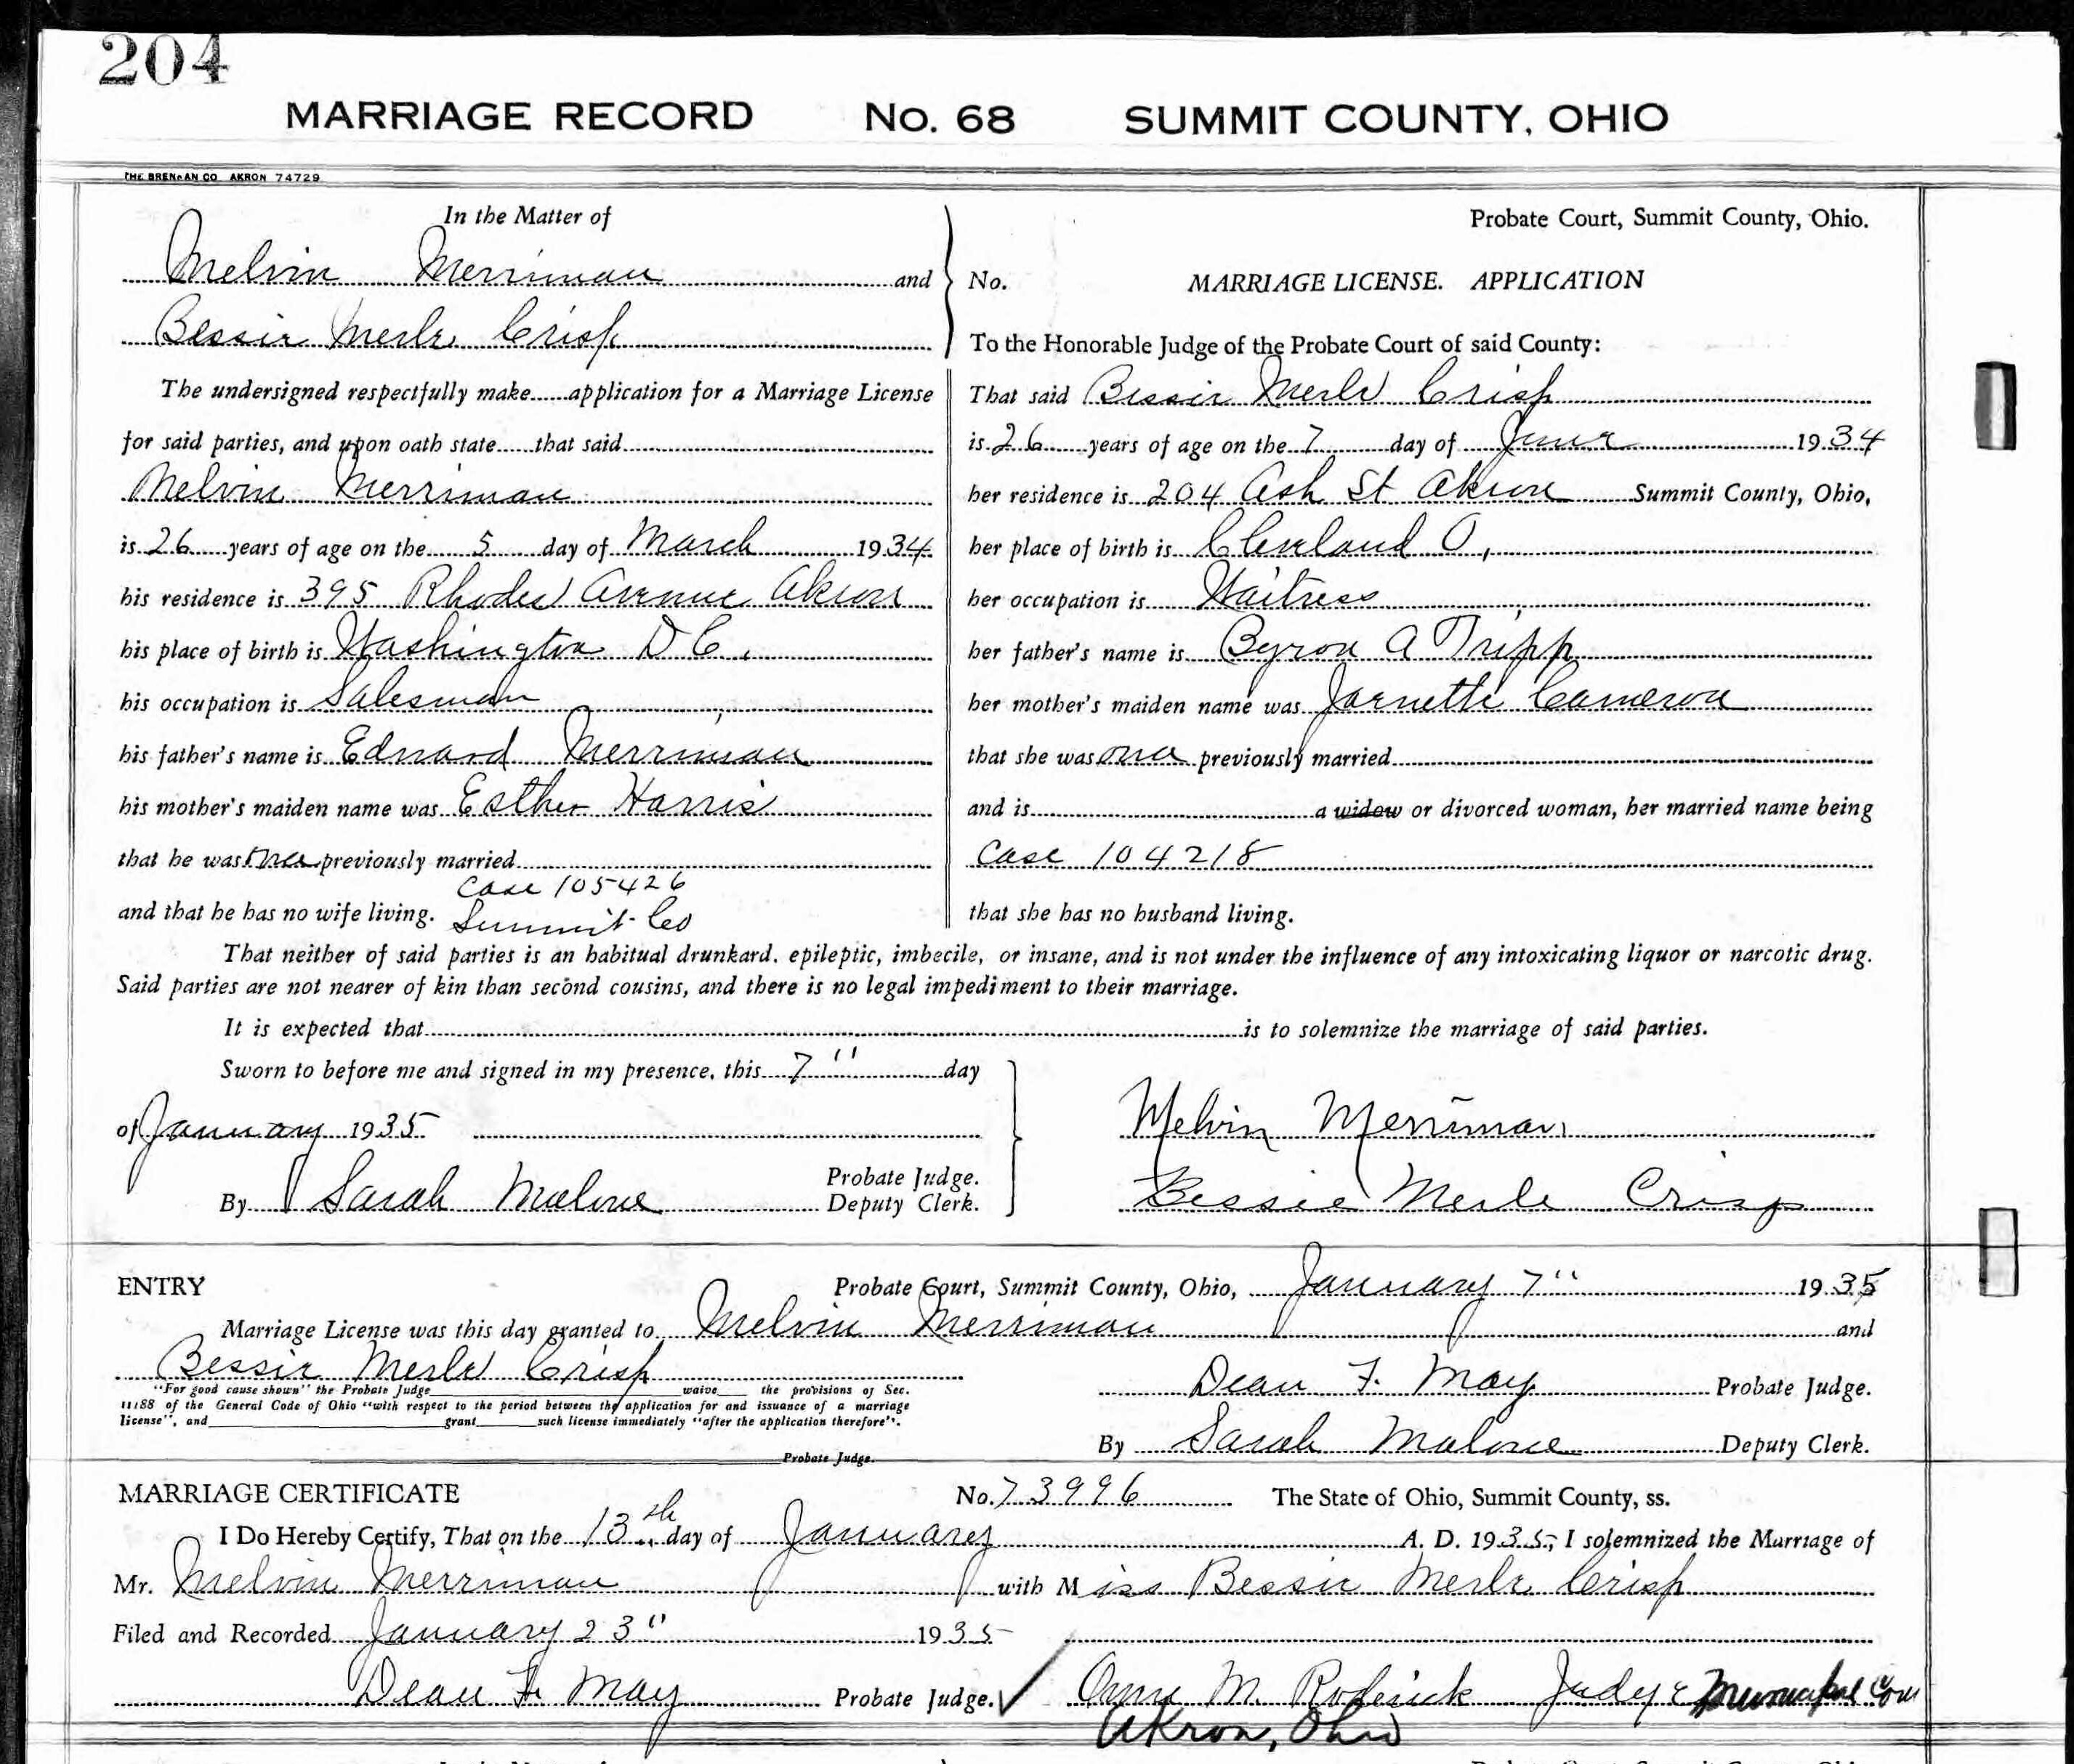 204
MARRIAGE RECORD No. 68 SUMMIT COUNTY, OHIO
THE BRENNAN CO AKRON 74729
In the Matter of
Melvin Merriman and
Bessie Merle Crisp
The undersigned respectfully make application for a Marriage License
for said parties, and upon oath state that said
Melvin Merriman
is 26 years of age on the 5 day of March 1934
his residence is 395 Rhodes Avenue Akron
his place of birth is Washington D C.
his occupation is Salesman
his father's name is Edward Merriman
his mother's maiden name was Esther Harris
that he was once previously married
Case 105426
and that he has no wife living. Summit Co
Probate Court, Summit County, Ohio.
No. MARRIAGE LICENSE. APPLICATION
To the Honorable Judge of the Probate Court of said County:
That said Bessie Merle Crisp
is 26 years of age on the 7 day of June 1934
her residence is 204 Ash St Akron Summit County, Ohio,
her place of birth is Cleveland O,
her occupation is Waitress
her father's name is Byron A Tripp
her mother's maiden name was Jarnette Cameron
that she was once previously married
and is a widow or divorced woman, her married name being
Case 104218
that she has no husband living.
That neither of said parties is an habitual drunkard, epileptic, imbecile, or insane, and is not under the influence of any intoxicating liquor or narcotic drug.
Said parties are not nearer of kin than second cousins, and there is no legal impediment to their marriage.
It is expected that is to solemnize the marriage of said parties.
Sworn to before me and signed in my presence, this 7" day
of January 1935
Probate Judge.
By Sarah Malone Deputy Clerk.
Melvin Merriman
Bessie Merle Crisp
ENTRY Probate Court, Summit County, Ohio, January 7" 1935
Marriage License was this day granted to Melvin Merriman and
Bessie Merle Crisp
"For good cause shown" the Probate Judge waive the provisions of Sec.
11188 of the General Code of Ohio "with respect to the period between the application for and issuance of a marriage
license", and grant such license immediately "after the application therefore".
Probate Judge.
Dean F. May Probate Judge.
By Sarah Malone Deputy Clerk.
MARRIAGE CERTIFICATE No. 73996 The State of Ohio, Summit County, ss.
I Do Hereby Certify, That on the 13th day of January A. D. 1935, I solemnized the Marriage of
Mr. Melvin Merriman with Miss Bessie Merle Crisp
Filed and Recorded January 23" 1935
Dean F. May Probate Judge. M. Roderick Judge Municipal Cour
Akron, Ohio